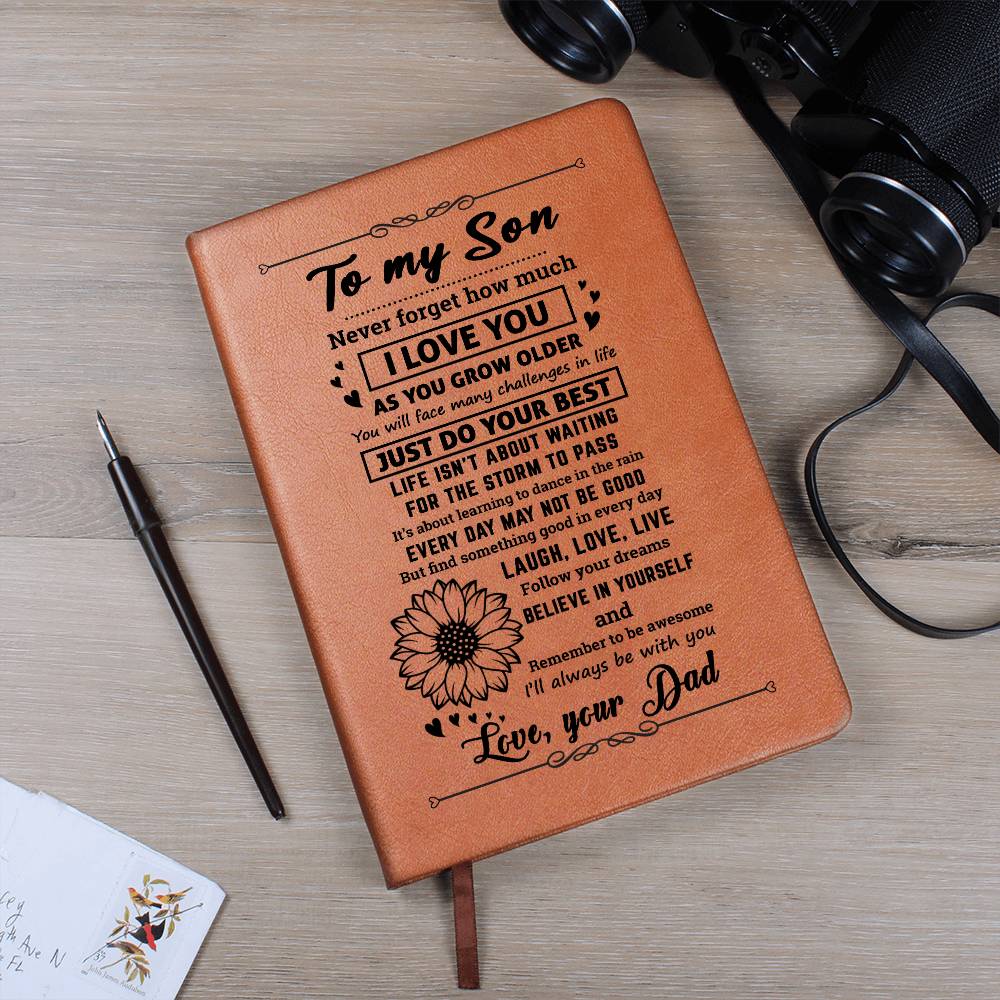 To my Son
Never forget how much
I LOVE YOU
AS YOU GROW OLDER
You will face many challenges in life
JUST DO YOUR BEST
LIFE ISN'T ABOUT WAITING
FOR THE STORM TO PASS
It's about learning to dance in the rain
EVERY DAY MAY NOT BE GOOD
But find something good in every day
LAUGH, LOVE, LIVE
Follow your dreams
BELIEVE IN YOURSELF
and
Remember to be awesome
I'll always be with you
Love, your Dad
Ave N
FL
37
John James Audubon